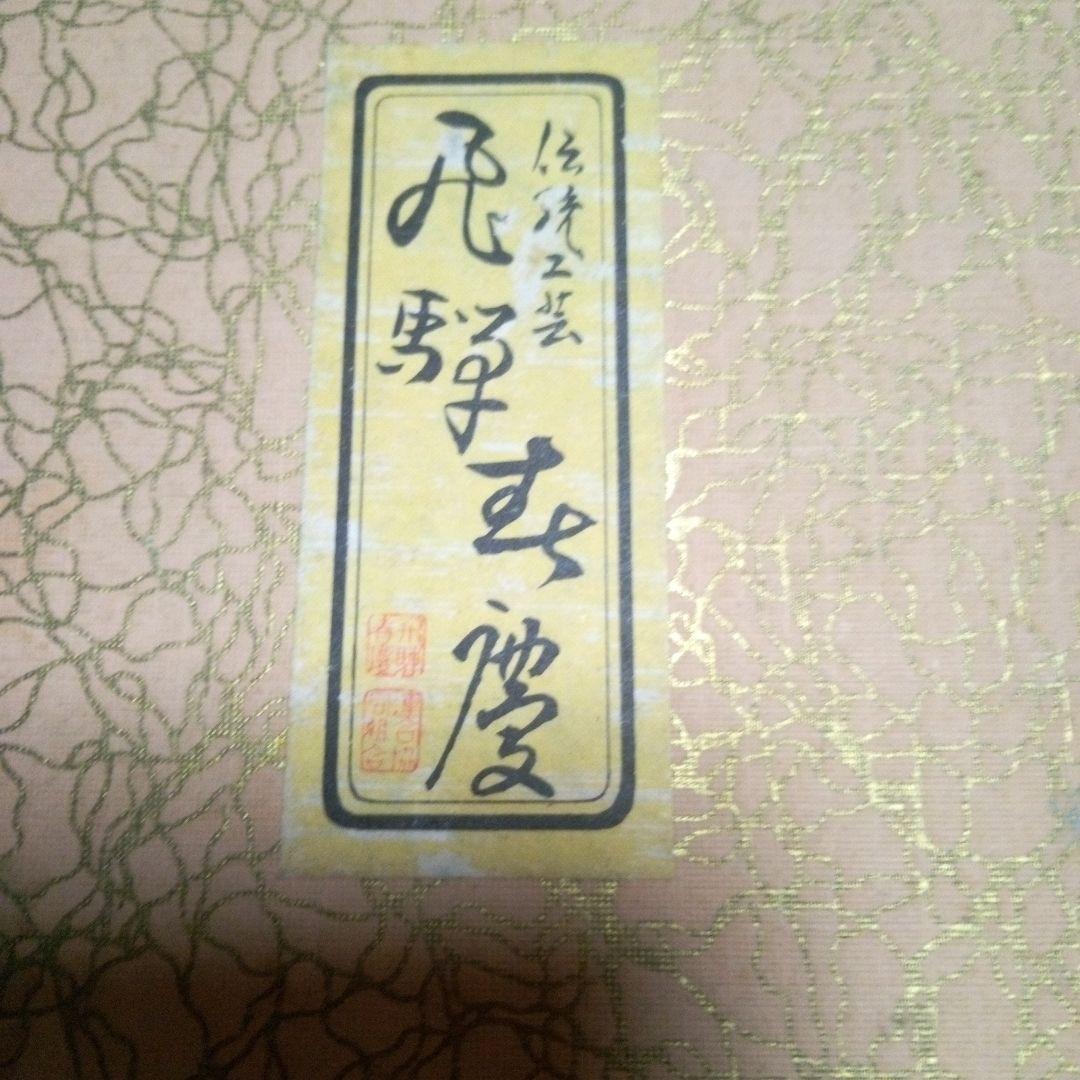 伝統工芸
飛驒春慶